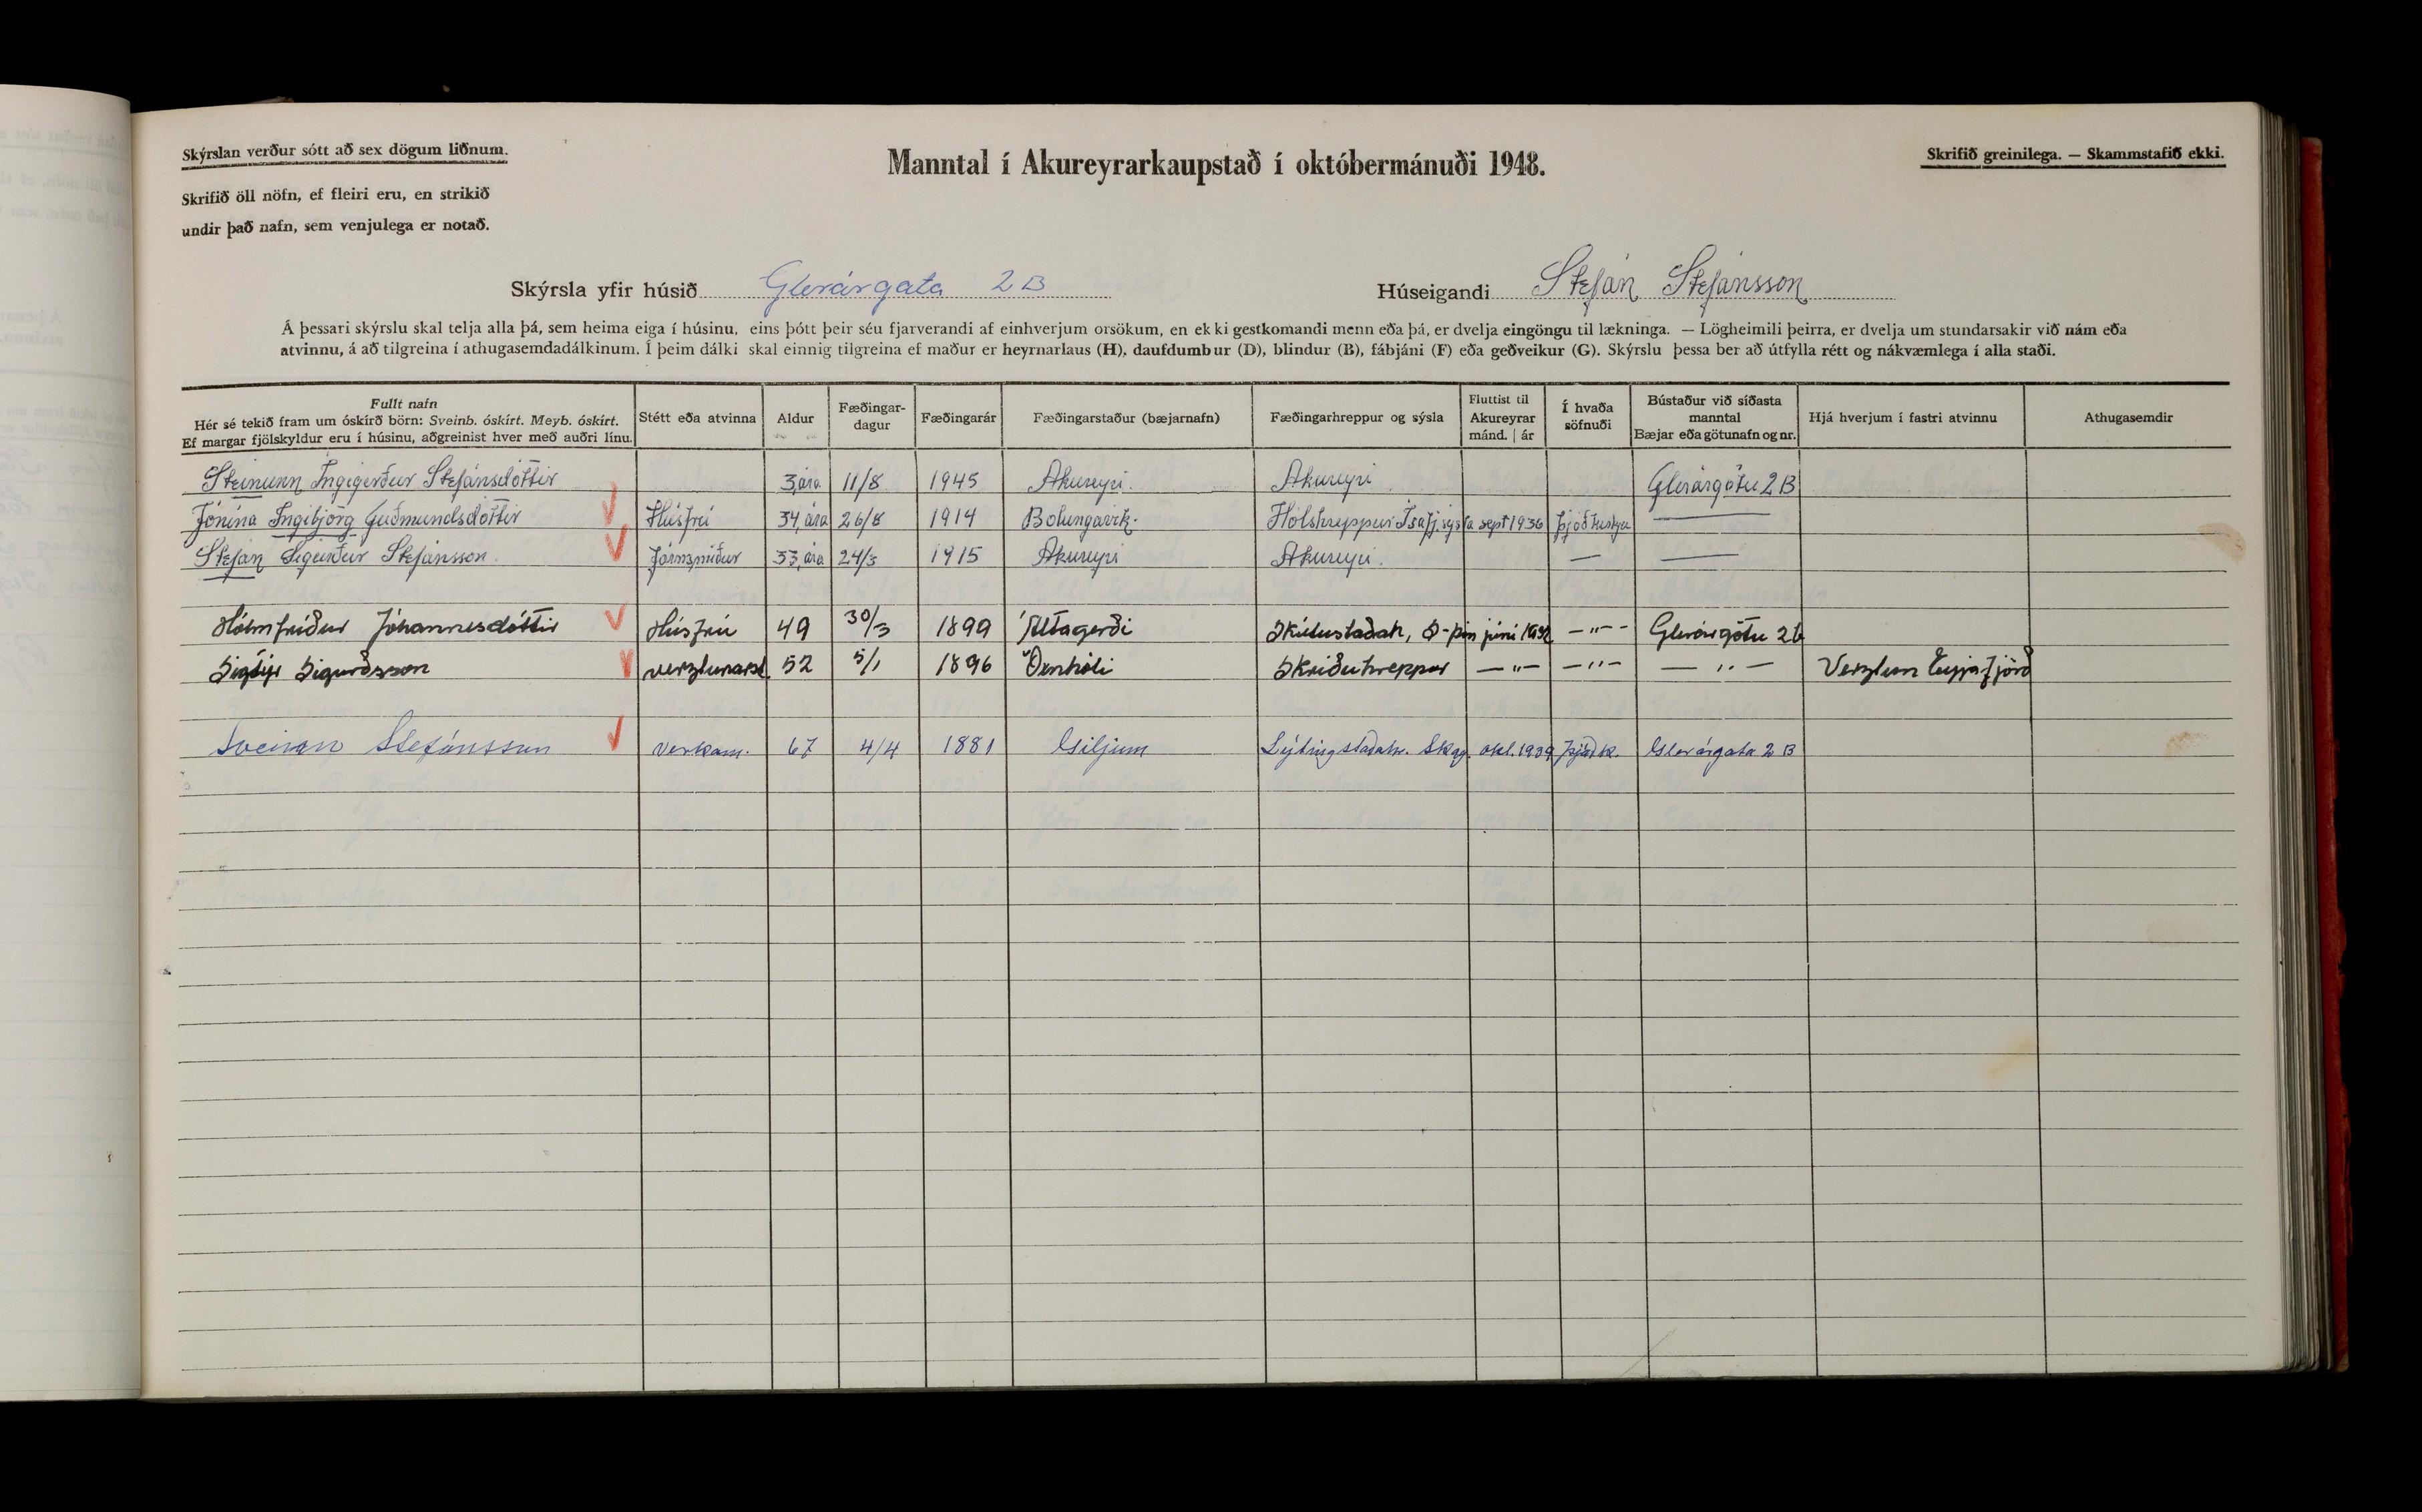 Skýrslan verður sótt að sex dögum liðnum.
Manntal í Akureyrarkaupstað í októbermánuði 1948.
Skrifið greinilega. — Skammstafið ekki.
Skrifið öll nöfn, ef fleiri eru, en strikið
undir það nafn, sem venjulega er notað.
Skýrsla yfir húsið Glerárgata 2B Húseigandi Stefán Stefánsson
Á þessari skýrslu skal telja alla þá, sem heima eiga í húsinu, eins þótt þeir séu fjarverandi af einhverjum orsökum, en ekki gestkomandi menn eða þá, er dvelja eingöngu til lækninga. — Lögheimili þeirra, er dvelja um stundarsakir við nám eða
atvinnu, á að tilgreina í athugasemdadálkinum. Í þeim dálki skal einnig tilgreina ef maður er heyrnarlaus (H), daufdumbur (D), blindur (B), fábjáni (F) eða geðveikur (G). Skýrslu þessa ber að útfylla rétt og nákvæmlega í alla staði.
Fullt nafn
Hér sé tekið fram um óskírð börn: Sveinb. óskírt. Meyb. óskírt.
Ef margar fjölskyldur eru í húsinu, aðgreinist hver með auðri línu.
Stétt eða atvinna
Aldur
Fæðingar-
dagur
Fæðingarár
Fæðingarstaður (bæjarnafn)
Fæðingarhreppur og sýsla
Fluttist til
Akureyrar
mánd. | ár
Í hvaða
söfnuði
Bústaður við síðasta
manntal
Bæjar eða götunafn og nr.
Hjá hverjum í fastri atvinnu
Athugasemdir
Steinunn Ingigerður Stefánsdóttir 3 ára 11/8 1945 Akureyri. Akureyri Glerárgötu 2B
Jónína Ingibjörg Guðmundsdóttir Húsfrú 34 ára 26/8 1914 Bolungarvík. Hólshreppur Ísafj.sýsla sept 1936 þjóðkirkju —
Stefán Sigurður Stefánsson. Járnsmiður 33 ára 24/3 1915 Akureyri Akureyri. — —
Hólmfríður Jóhannesdóttir Húsfrú 49 30/3 1899 Ytra Skútustaðah, S-þin júní 1932 —"— Glerárgötu 2b
Sigurðsson verzlunarst. 52 5/1 1896 Öxnhóli Skriðuhreppur —"— —"— —"— Verzlun Eyjafjörð
Sveinn Stefánsson verkam. 67 4/4 1881 Giljum Lýtingsstaðahr. Skag. okt. 1939 Þjóðk. Glerárgata 2B